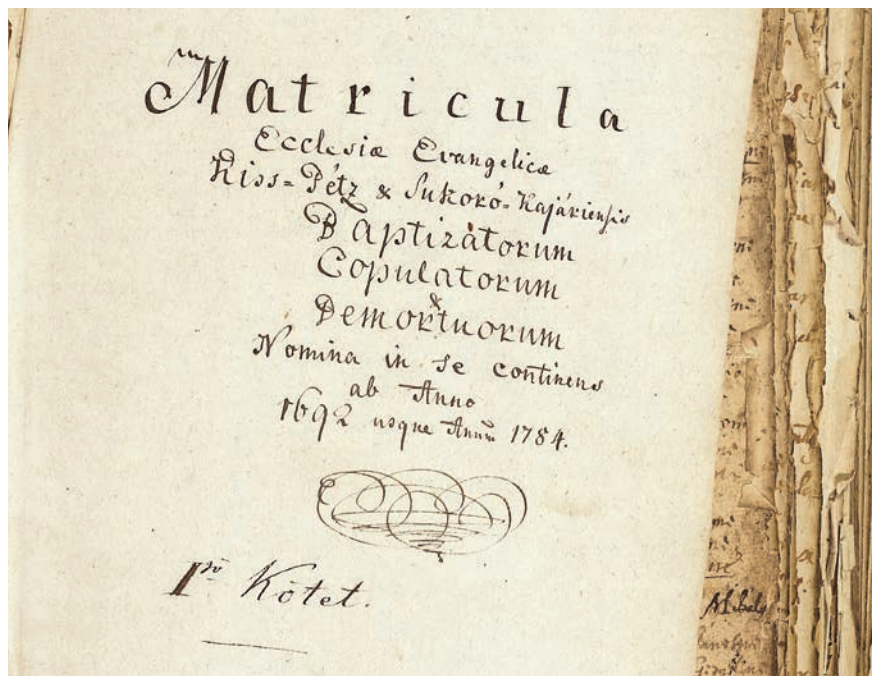 Matricula
Ecclesiæ Evangelicæ
Kiss=Pétz & Sukoró=Kajáriensis
Baptizatorum
Copulatorum
&
Demortuorum
Nomina in se continens
ab Anno
1692 usque Anum̄ 1784.
1ső Kötet.
Mihály